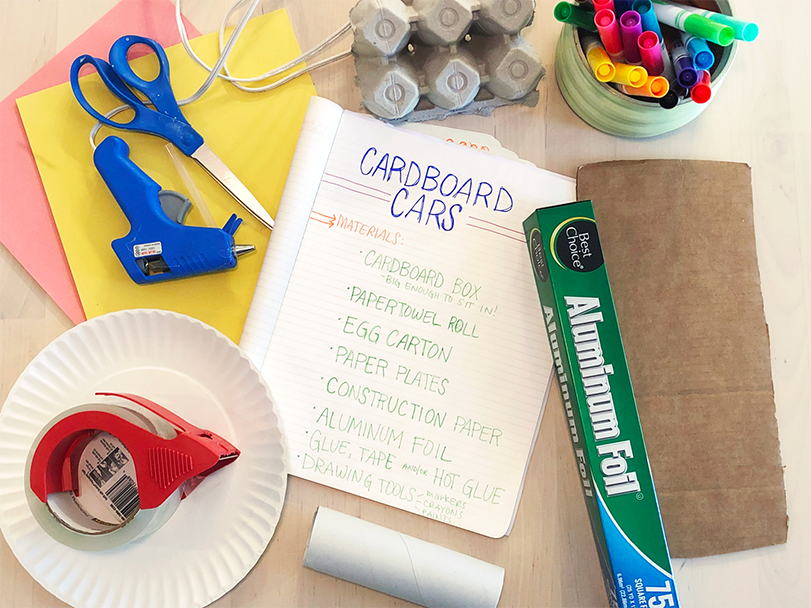 CARDBOARD
CARS
MATERIALS:
· CARDBOARD BOX
- BIG ENOUGH TO SIT IN!
· PAPERTOWEL ROLL
· EGG CARTON
· PAPER PLATES
· CONSTRUCTION PAPER
· ALUMINUM FOIL
· GLUE, TAPE AND/OR HOT GLUE
· DRAWING TOOLS - markers
- CRAYONS
- PAINTS
Best
Choice®
Aluminum Foil
Aluminum Foil
75
SQUARE